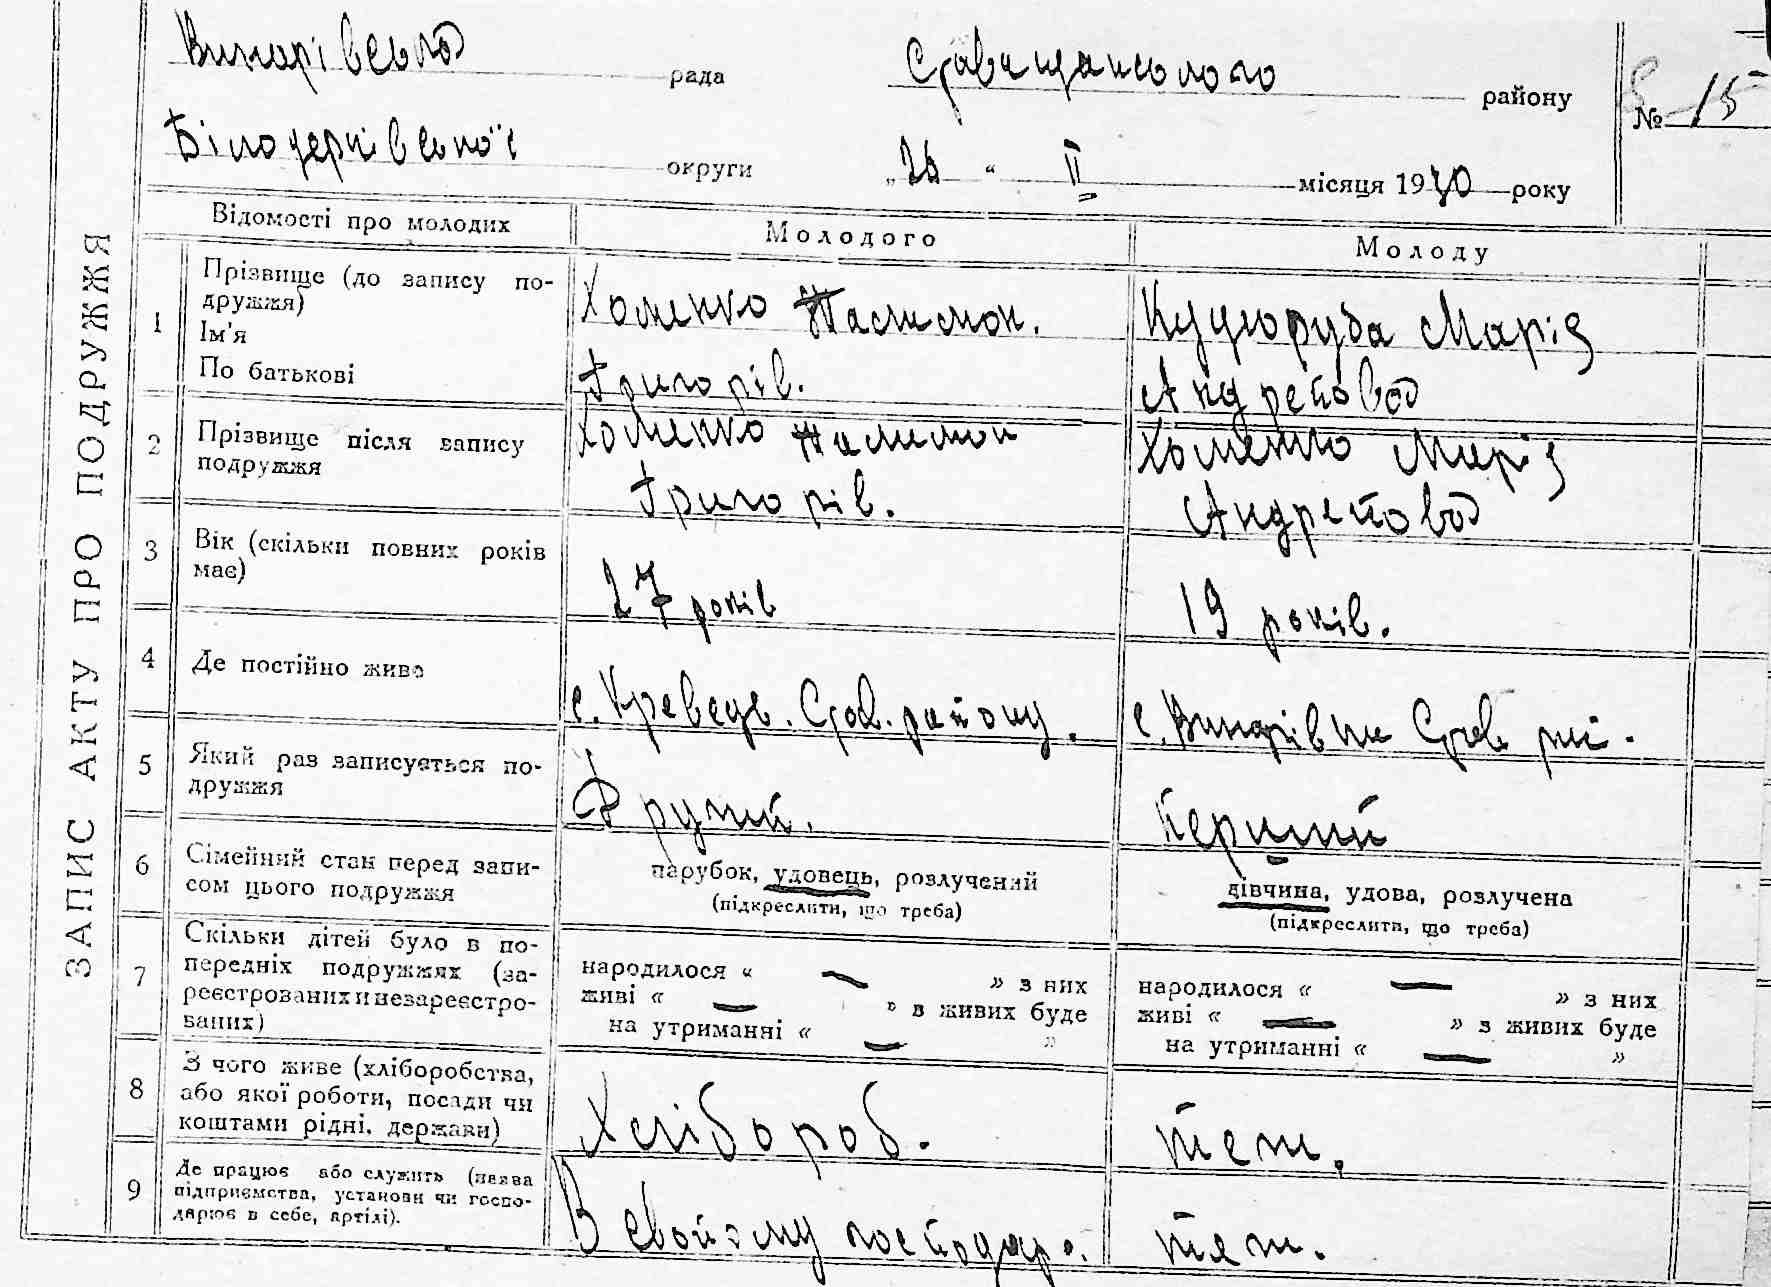 Винарівська рада Ставищанського району № 15
Білоцерківської округи „26 “ II місяця 1930 року
ЗАПИС АКТУ ПРО ПОДРУЖЖЯ
Відомості про молодих Молодого Молоду
1 Прізвище (до запису по-
дружжя)
Ім'я
По батькові
Хоменко Палимон.
Григорів.
Куцоруба Марія
Андрейовна
2 Прізвище після запису
подружжя
Хоменко Палимон
Григорів.
Хоменко Марія
Андрейовна
3 Вік (скільки повних років
має)
27 років
19 років.
4 Де постійно живе
с. Став. району.
с. Винарівка Став
5 Який раз записується по-
дружжя
Другий.
Перший
6 Сімейний стан перед запи-
сом цього подружжя
парубок, удовець, розлучений
(підкреслити, що треба)
дівчина, удова, розлучена
(підкреслити, що треба)
7 Скільки дітей було в по-
передніх подружжях (за-
реєстрованих і незареєстро-
ваних)
народилося « — » з них
живі « — » в живих буде
на утриманні « — »
народилося « — » з них
живі « — » з живих буде
на утриманні « — »
8 З чого живе (хліборобства,
або якої роботи, посади чи
коштами рідні, держави)
Хлібороб.
теж.
9 Де працює або служить (назва
підприємства, установи чи госпо-
дарює в себе, артілі).
В свойому господар.
теж.